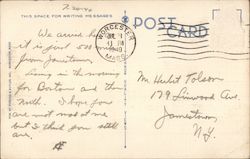 THIS SPACE FOR WRITING MESSAGES
POST CARD
WORCESTER
MASS.
We arrived here
it is just 500 miles
from Jamestown.
Going in the morning
for Boston and the
North. I hope you
are not mad at me
but I think you still
are.
Mr. Hubt Tolson
179 Linwood Ave
Jamestown
N.Y.